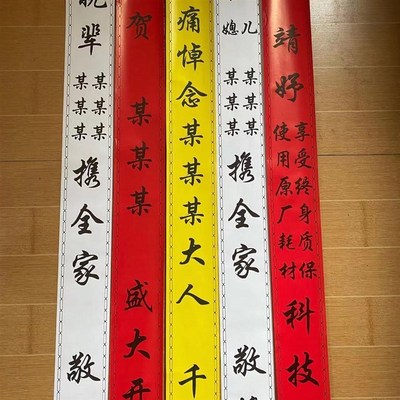 靖妤
享受终身质保
使用原厂耗材
科技
儿
媳
某某某
某某某
携全家 敬
痛悼念某某某大人 千
贺 某某某 盛大开
晚辈
某某某
某某某
携全家 敬